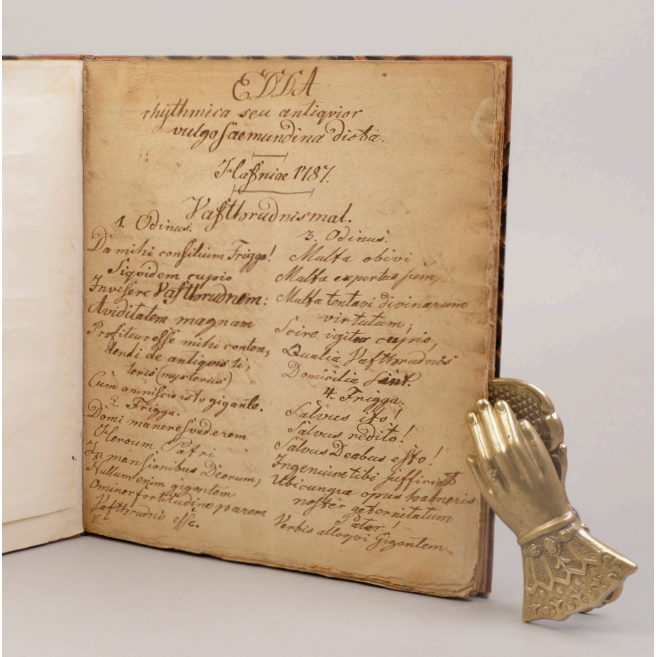 EDDA
rhÿthmica seu antiqvior
vulgo Saemundina dicta.
Hafniae 1787.
Vafthrudnismal.
1. Odinus.
Da mihi consilium Frigga!
Siqvidem cupio
Invisere Vafthrudnem:
Aviditatem magnam
Profiteor esse mihi conten,
dendi de antiqvis li,
teris (mysteriis)
Cum omniscio isto gigante.
2. Frigga.
Domi manere svaderem
Heroum Patri
In mansionibus Deorum,
Nullum enim gigantem
Ominor fortitudine parem
Vafthrudni esse.
3. Odinus.
Multa obivi
Multa expertus sum,
Multa tentavi divinarum
virtutum;
Scire igitur cupio,
Qualia Vafthrudnis
Domicilia sint.
4. Frigga.
Salvus ito!
Salvus redito!
Salvus Deabus esto!
Ingenium tibi sufficiat
Ubicunqve opus habueris
noster gubernatum
Pater!
Verbis alloqvi Gigantem.